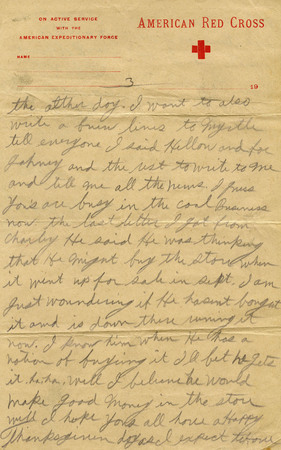 ON ACTIVE SERVICE
WITH THE
AMERICAN EXPEDITIONARY FORCE
AMERICAN RED CROSS
NAME
3
19
the other day. I want to also
write a few lines to Myrtle
tell everyone I said Hellow and for
Johney and the rest to write to me
and tell me all the news. I guess
yous are busy in the coal Business
now the last letter I got from
Charley He said He was thinking
that He might buy the store when
it went up for sale in sept. I am
Just woundering if He hasn't bought
it and is down there runing it
now. I know him when He has a
notion of buying it I'll bet he gets
it. ha.ha. Well I believe he would
make good money in the store
well I hope yous all have a Happy
Thanksgiven day as I expect to have